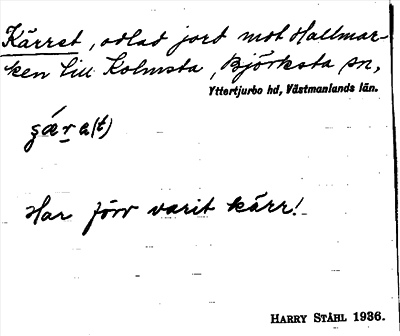 Kärret, odlad jord mot Hallmar-
ken till Kolmsta, Björksta sn,
Yttertjurbo hd, Västmanlands län.
ɕǽra(t)
Har förr varit kärr!
HARRY STÅHL 1936.